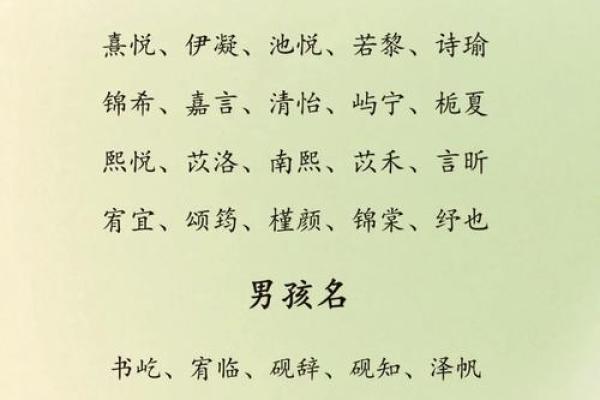 熹悦、伊凝、池悦、若黎、诗瑜
锦希、嘉言、清怡、屿宁、栀夏
熙悦、苡洛、南熙、苡禾、言昕
宥宜、颂筠、槿颜、锦棠、纾也
男孩名
书屹、宥临、砚辞、砚知、泽帆